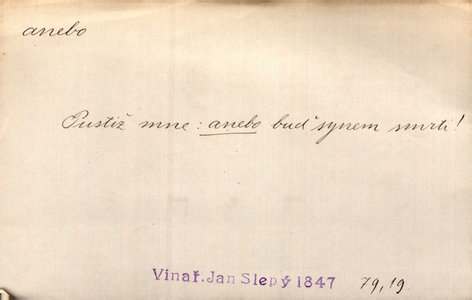 anebo
Pustiž mne: anebo buď synem smrti!
Vinař. Jan Slepý 1847 79,19.